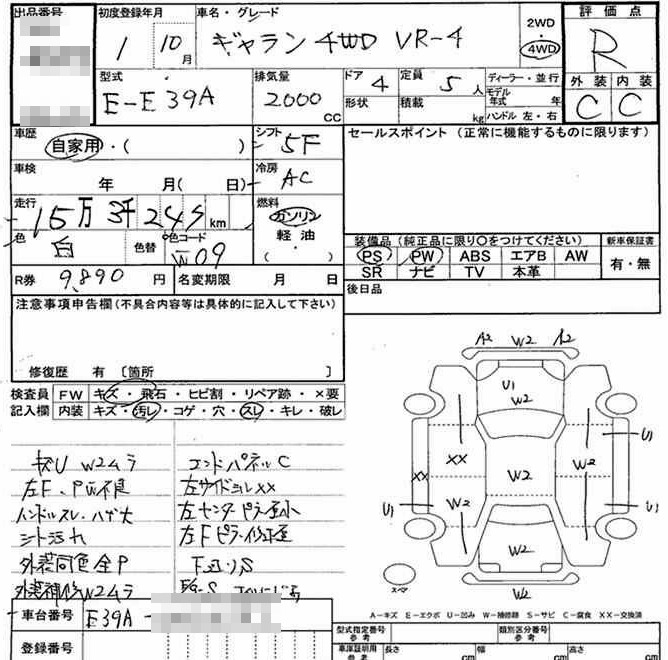 出品番号
初度登録年月
1 10月
車名・グレード
ギャラン 4WD VR-4
2WD
4WD
評価点
R
型式
E-E39A
排気量
2000 CC
ドア 4
定員 5人
形状
積載 kg
ディーラー・並行
モデル年式 年
ハンドル 左・右
外装 内装
C C
車歴
自家用・( )
シフト
5F
セールスポイント (正常に機能するものに限ります)
車検 年 月( 日)
冷房
AC
走行
15万3千245km
燃料
ガソリン
軽油
( )
色
白
色替
色コード
W09
装備品 (純正品に限り○をつけてください)
新車保証書
PS PW ABS エアB AW
SR ナビ TV 本革
有・無
R券 9,890円
名変期限 月 日
後日品
注意事項申告欄(不具合内容等は具体的に記入して下さい)
修復歴 有 〔箇所 〕
検査員
記入欄
FW キズ・飛石・ヒビ割・リペア跡・×要
内装 キズ・汚レ・コゲ・穴・スレ・キレ・破レ
W2ムラ
左F・PW不良
ハンドルスレ・ハゲ大
シート汚れ
外装同色全P
外装補修W2ムラ
エンドパネルC
左サイドシルXX
左センターピラー歪小
左Fピラー修正歪
下廻りS
A2 W2 A2
U1
W2
U1
XX
XX
W2
W2
W2
U1
U1
W2
W2
スペア
A-キズ E-エクボ U-凹み W-補修跡 S-サビ C-腐食 XX-交換済
車台番号 E39A-
登録番号
型式指定番号
参考
類別区分番号
参考
車庫証明用
参考
長さ cm
幅 cm
高さ cm